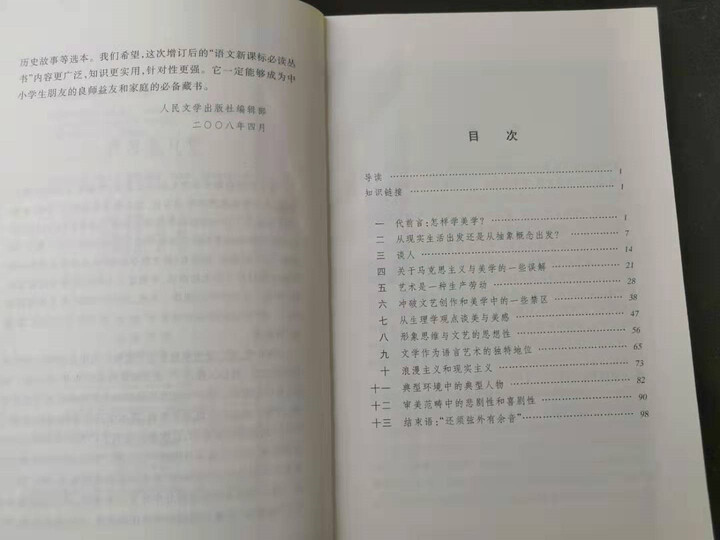 历史故事等选本。我们希望,这次增订后的“语文新课标必读丛
书”内容更广泛,知识更实用,针对性更强。它一定能够成为中
小学生朋友的良师益友和家庭的必备藏书。
人民文学出版社编辑部
二〇〇八年四月
目 次
导读 …………………………………………… 1
知识链接 ……………………………………… 1
一 代前言:怎样学美学? …………………… 1
二 从现实生活出发还是从抽象概念出发? …… 7
三 谈人 ……………………………………… 14
四 关于马克思主义与美学的一些误解 ……… 21
五 艺术是一种生产劳动 …………………… 28
六 冲破文艺创作和美学中的一些禁区 ……… 38
七 从生理学观点谈美与美感 ……………… 47
八 形象思维与文艺的思想性 ……………… 56
九 文学作为语言艺术的独特地位 ………… 65
十 浪漫主义和现实主义 …………………… 73
十一 典型环境中的典型人物 ……………… 82
十二 审美范畴中的悲剧性和喜剧性 ……… 90
十三 结束语:“还须弦外有余音” ………… 98